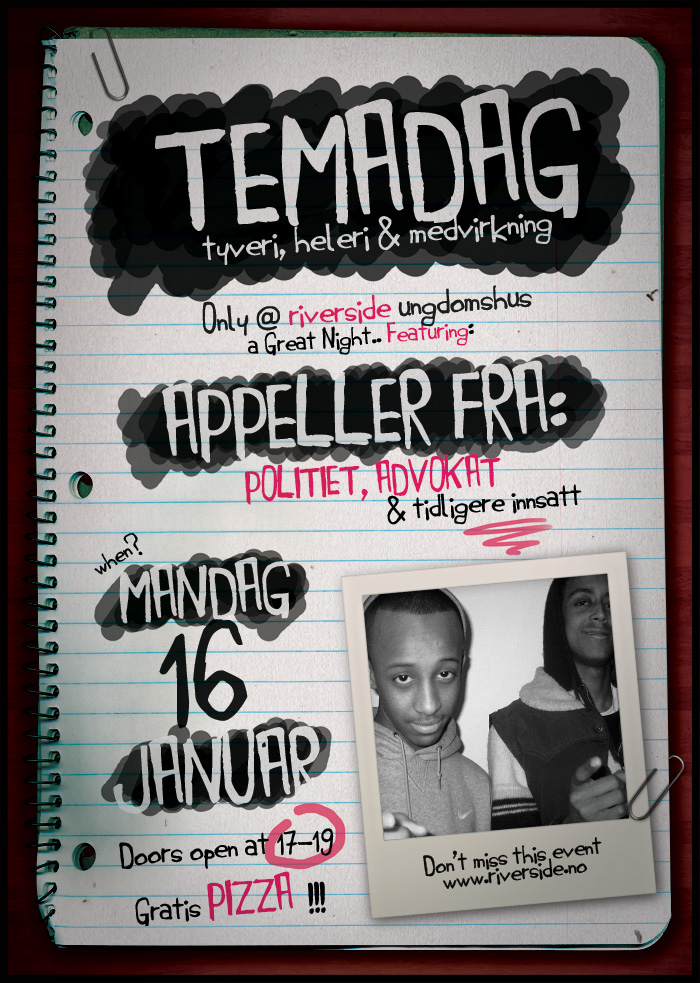 TEMADAG
tyveri, heleri & medvirkning
Only @ riverside ungdomshus
a Great Night.. Featuring:
APPELLER FRA:
POLITIET, ADVOKAT
& tidligere innsatt
when?
MANDAG
16
JANUAR
Doors open at 17-19
Gratis PIZZA !!!
Don't miss this event
www.riverside.no